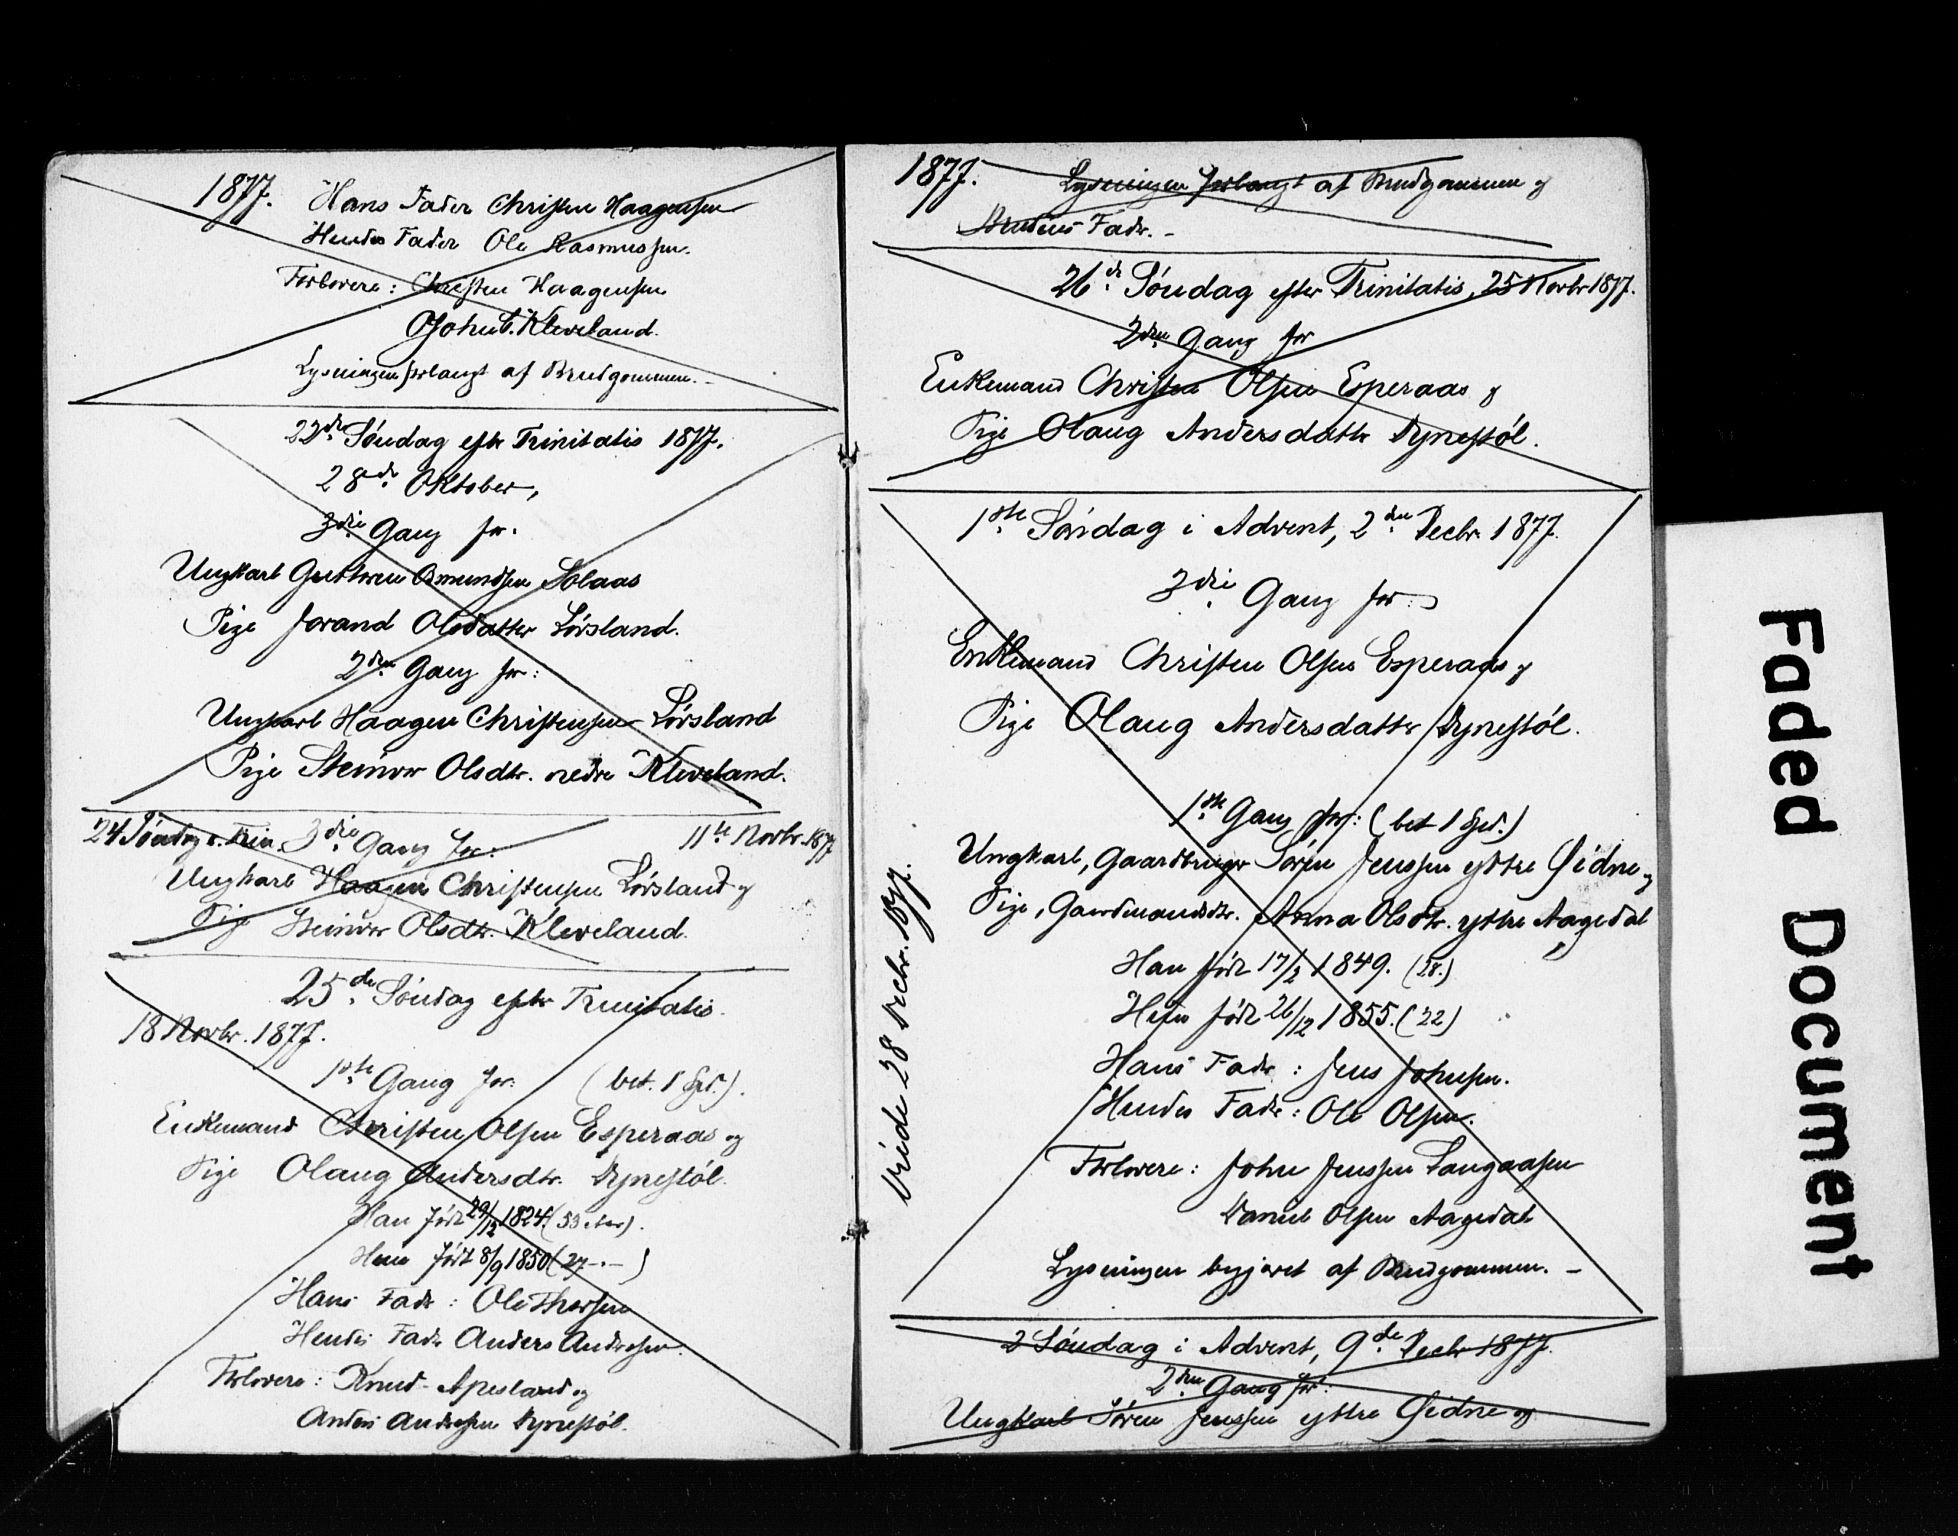 1877. Hans Fader Christen Haagensen
Hendes Fader Ole Rasmussen.
Forlovere: Christen Haagensen
O. Kleveland.
Lysningen forlangt af Brudgommen. -
22de Søndag efter Trinitatis 1877.
28de Oktober,
3die Gang for.
Ungkarl Guttorm Osmundsen Solaas
Pige Jorand Olsdatter Lørsland.
2den Gang for:
Ungkarl Haagen Christensen Lørsland
Pige Steinvor Olsdtr. nedre Kleveland.
24 Søndag e. Trin. 3die Gang for: 11te Novbr. 1877
Ungkarl Haagen Christensen Lørsland og
Pige Steinvor Olsdtr. Kleveland.
25de Søndag efter Trinitatis.
18 Novbr. 1877.
1ste Gang for: (bet. 1 Spd.).
Enkemand Christen Olsen Esperaas og
Pige Olaug Andersdtr. Dynestøl.
Han født 29/12 1824. (53 Aar).
Hun født 8/9 1850 (27 -.-)
Hans Fader: Ole Thorsen
Hendes Fader Anders Andersen.
Forlovere: Knud Apesland og
Anders Andersen Dynestøl.
1877. Lysningen forlangt af Brudgommen og
Brudens Fader. -
26de Søndag efter Trinitatis, 25 Novbr 1877.
2den Gang for
Enkemand Christen Olsen Esperaas og
Pige Olaug Andersdatter Dynestøl.
1ste Søndag i Advent, 2den Decbr. 1877.
3die Gang for:
Enkemand Christen Olsen Esperaas og
Pige Olaug Andersdatter Dynestøl.
1ste Gang for: (bet 1 Spd.)
Ungkarl, Gaardbruger Søren Jenssen ystre Øidne og
Pige, Gaardmandsdtr. Anna Olsdtr. ystre Aagedal
Han født 17/2 1849. (28.)
Hun født 26/12 1855. (22)
Hans Fader: Jens Johnsen.
Hendes Fader: Ole Olsen.
Forlovere: John Jenssen Langaasen
Daniel Olsen Aagedal
Lysningen begjæret af Brudgommen. -
Viede 28 Decbr. 1877.
2 Søndag i Advent, 9de Decbr 1877.
2den Gang for:
Ungkarl Søren Jenssen ystre Øidne og
Faded Document